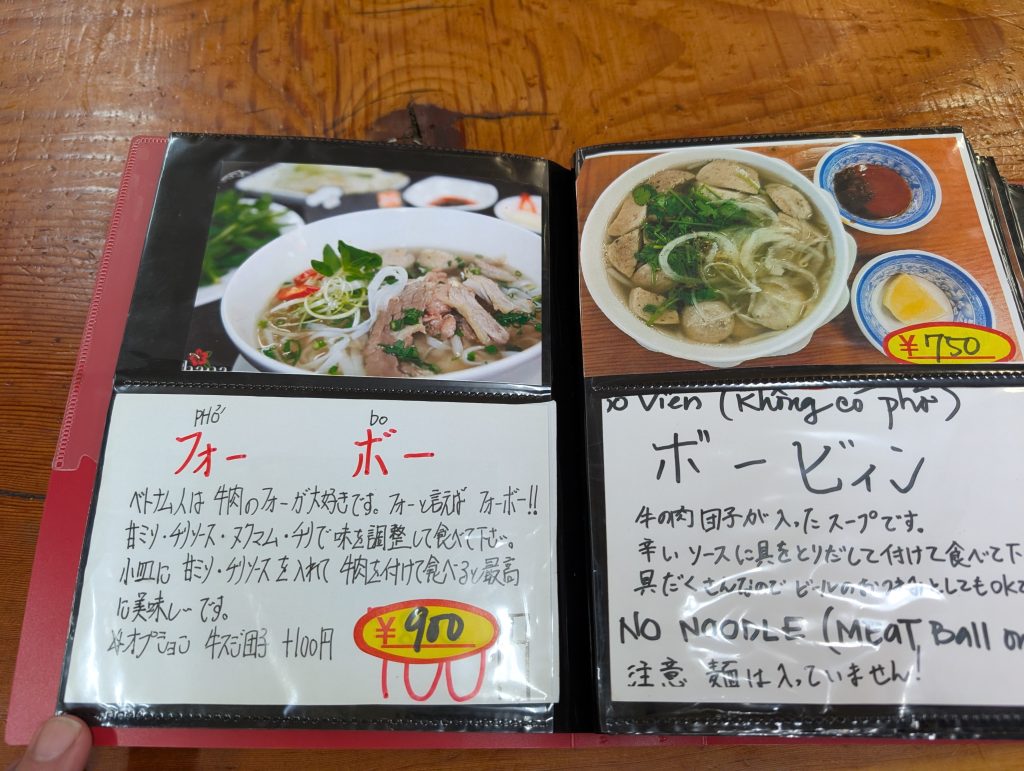 PHỞ bo
フォー ボー
ベトナム人は 牛肉のフォーが大好きです。フォーと言えば フォーボー!!
甘ミソ・チリソース・ヌクマム・チリで味を調整して食べて下さい。
小皿に 甘ミソ・チリソースを入れて 牛肉を付けて食べると最高
に美味しーです。
※オプション 牛スジ団子 +100円
¥900
¥750
Vien (Không có phở)
ボービィン
牛の肉団子が入ったスープです。
辛いソースに具をとりだして付けて食べて下
具だくさんなので ビールのおつまみとしてもok
NO NOODLE (MEAT Ball on
注意 麺は入っていません!